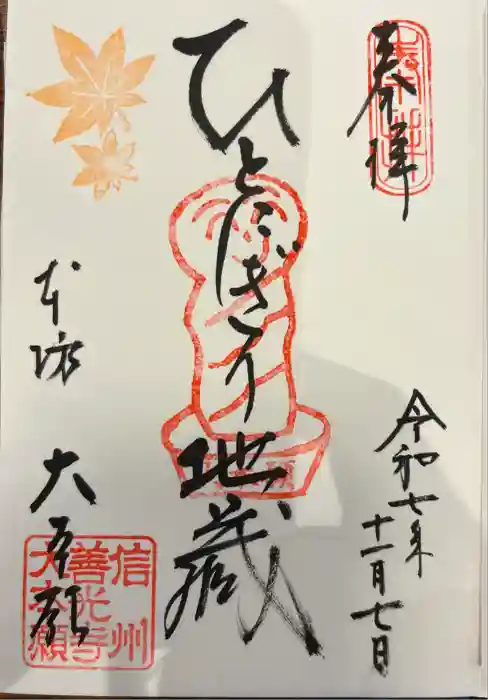 奉拝
令和七年
十一月七日
ひとにぎり地蔵
本坊
大本願
信州
善光寺
大本願